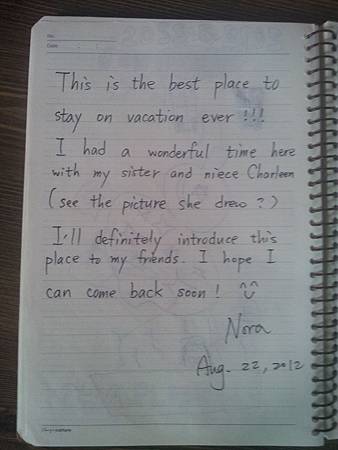 No.
Date
This is the best place to
stay on vacation ever !!!
I had a wonderful time here
with my sister and niece Charleen
(see the picture she drew ?)
I'll definitely introduce this
place to my friends. I hope I
can come back soon ! ^U^
Nora
Aug. 22, 2012